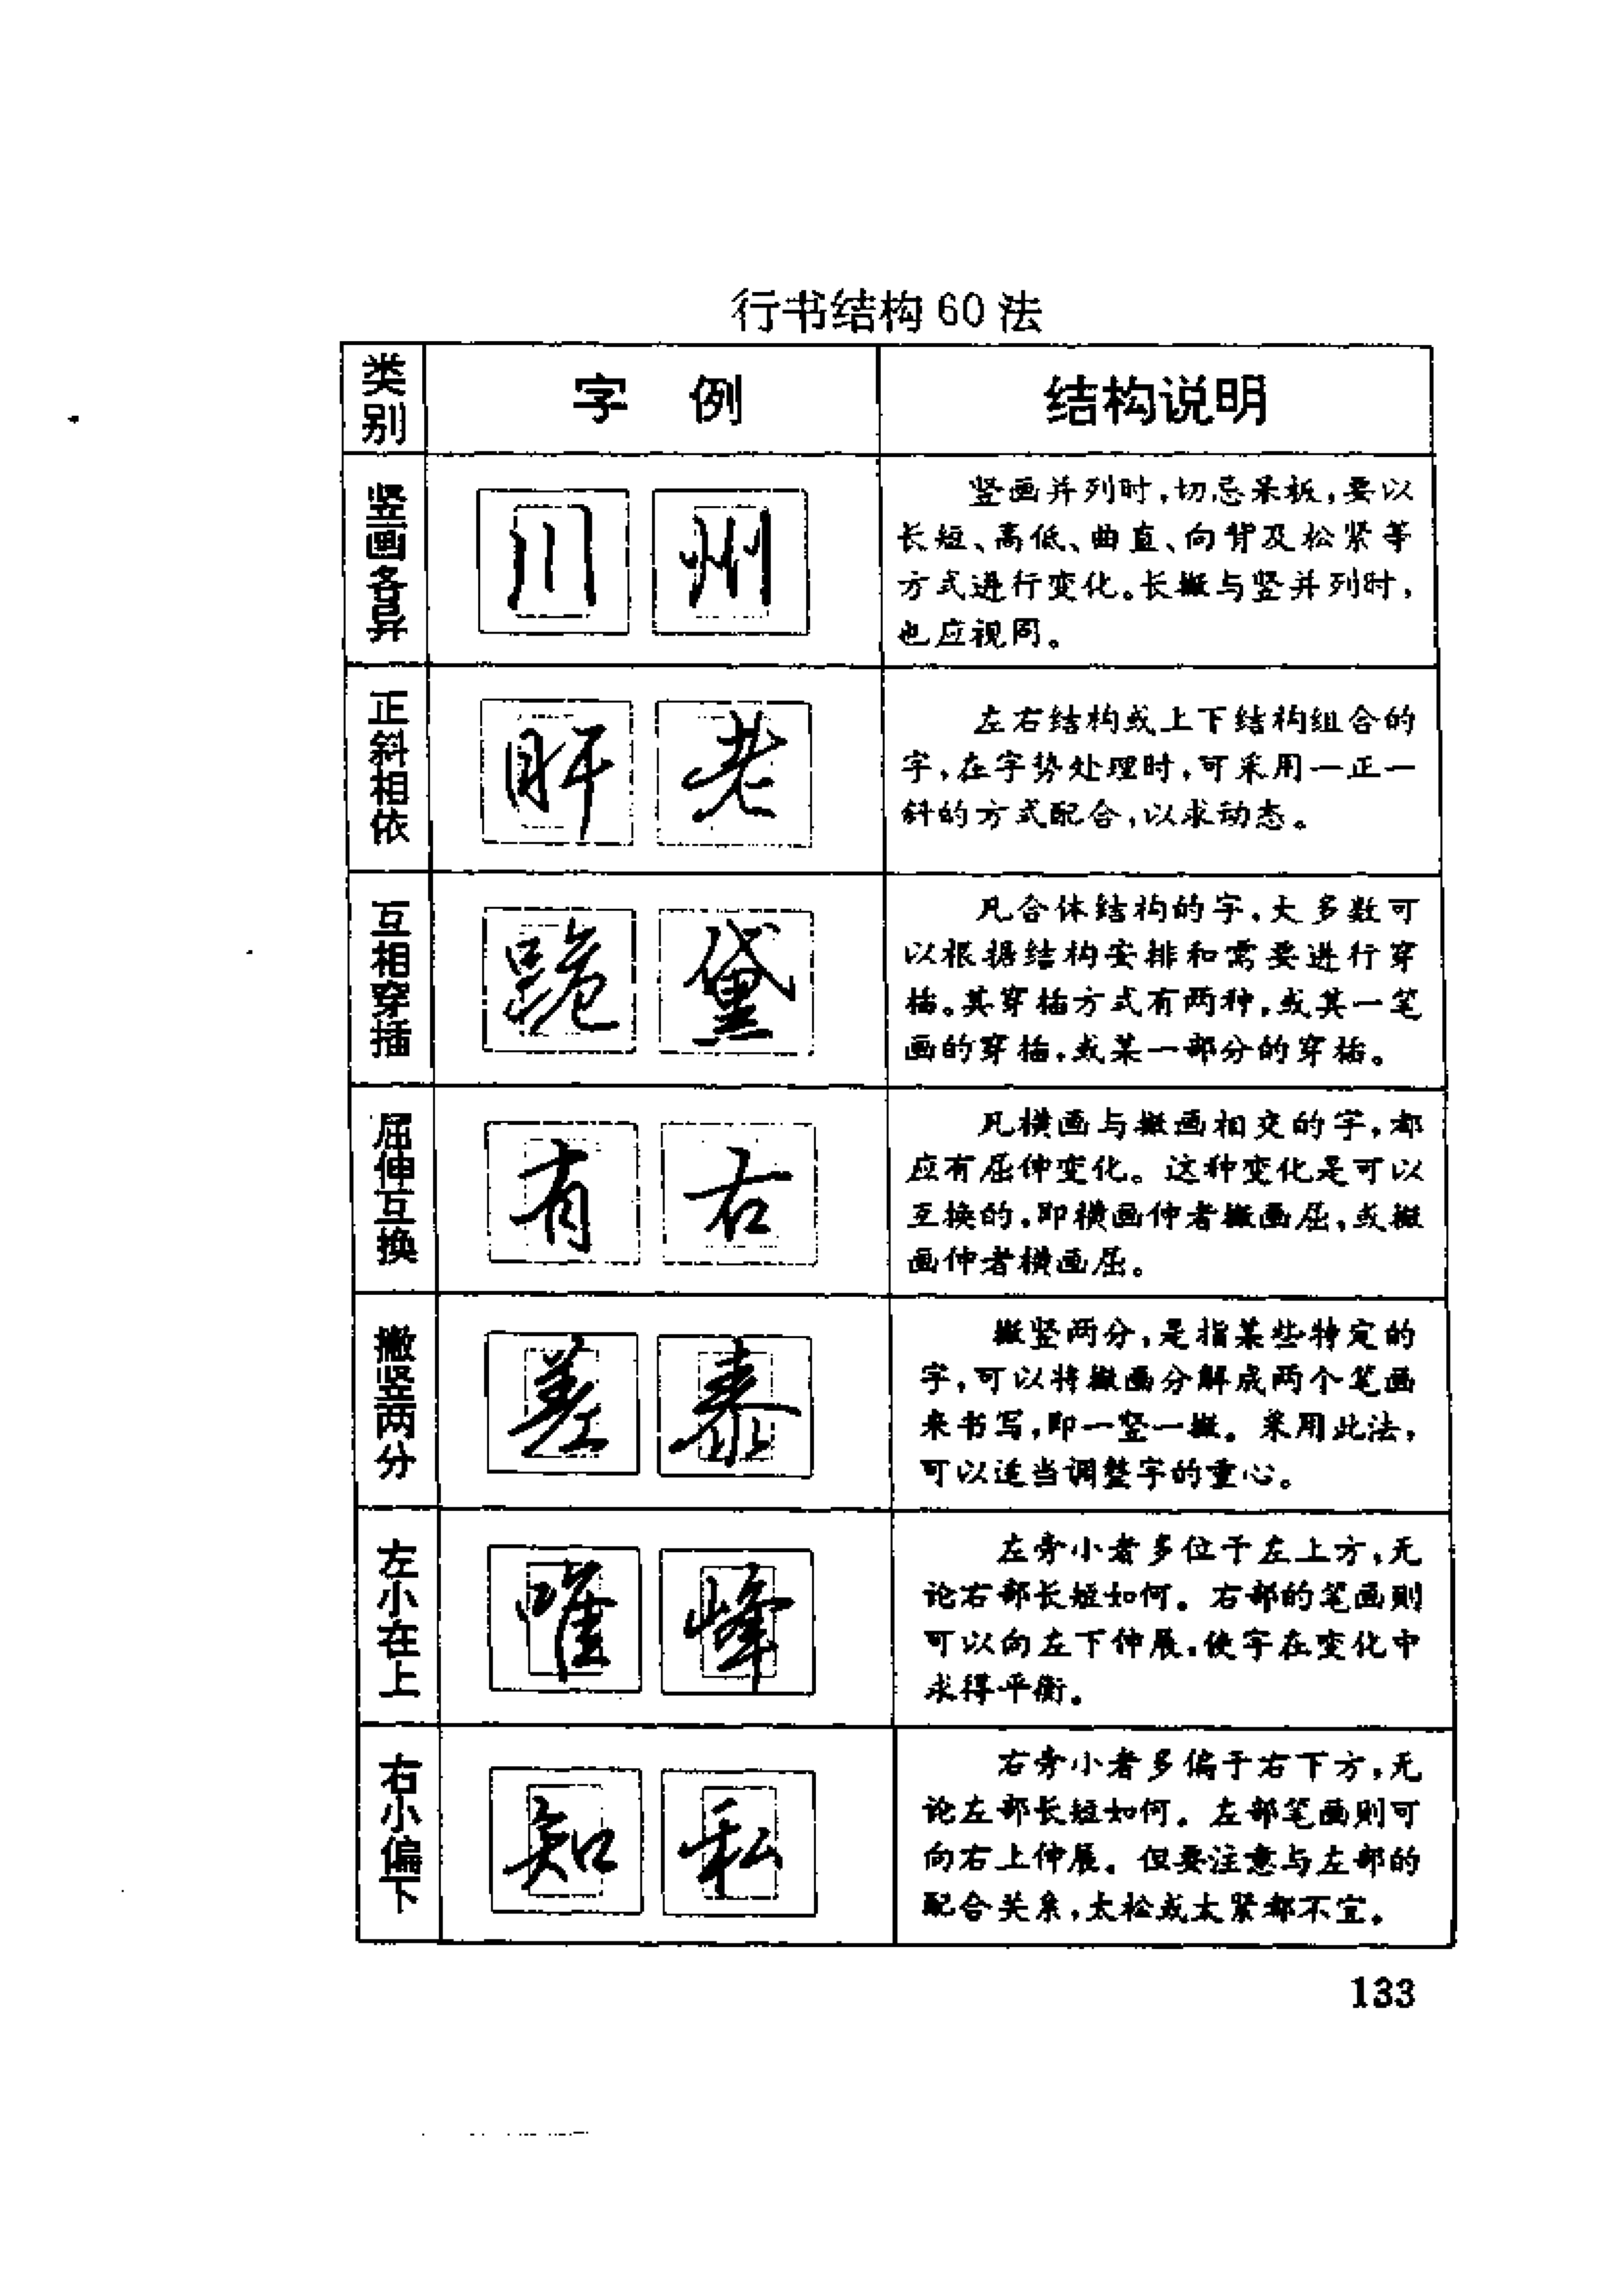 行书结构60法
类别
字 例
结构说明
竖画各异
川 州
竖画并列时,切忌呆板,要以
长短、高低、曲直、向背及松紧等
方式进行变化。长撇与竖并列时,
也应视同。
正斜相依
肝 老
左右结构或上下结构组合的
字,在字势处理时,可采用一正一
斜的方式配合,以求动态。
互相穿插
跪 黛
凡合体结构的字,大多数可
以根据结构安排和需要进行穿
插。其穿插方式有两种,或某一笔
画的穿插,或某一部分的穿插。
屈伸互换
有 右
凡横画与撇画相交的字,都
应有屈伸变化。这种变化是可以
互换的,即横画伸者撇画屈,或撇
画伸者横画屈。
撇竖两分
差 泰
撇竖两分,是指某些特定的
字,可以将撇画分解成两个笔画
来书写,即一竖一撇。采用此法,
可以适当调整字的重心。
左小在上
唯 峰
左旁小者多位于左上方,无
论右部长短如何。右部的笔画则
可以向左下伸展,使字在变化中
求得平衡。
右小偏下
知 私
右旁小者多偏于右下方,无
论左部长短如何。左部笔画则可
向右上伸展。但要注意与左部的
配合关系,太松或太紧都不宜。
133